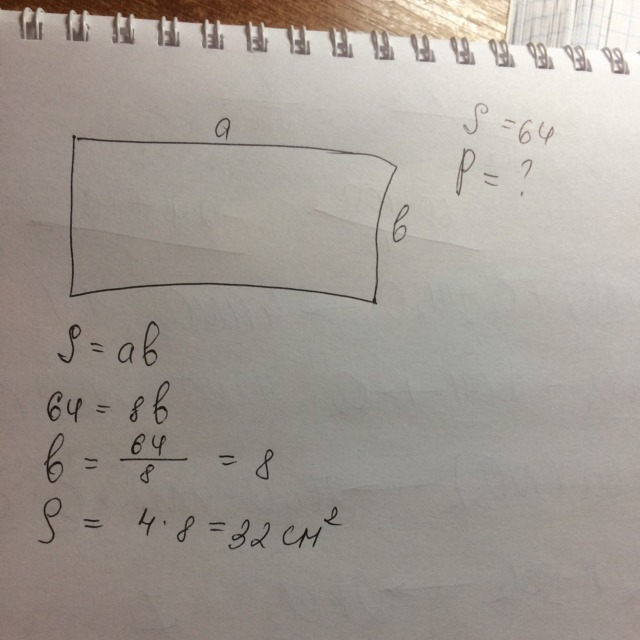 a
S = 64
P = ?
b
S = ab
64 = 8b
b = 64/8 = 8
S = 4·8 = 32 см²